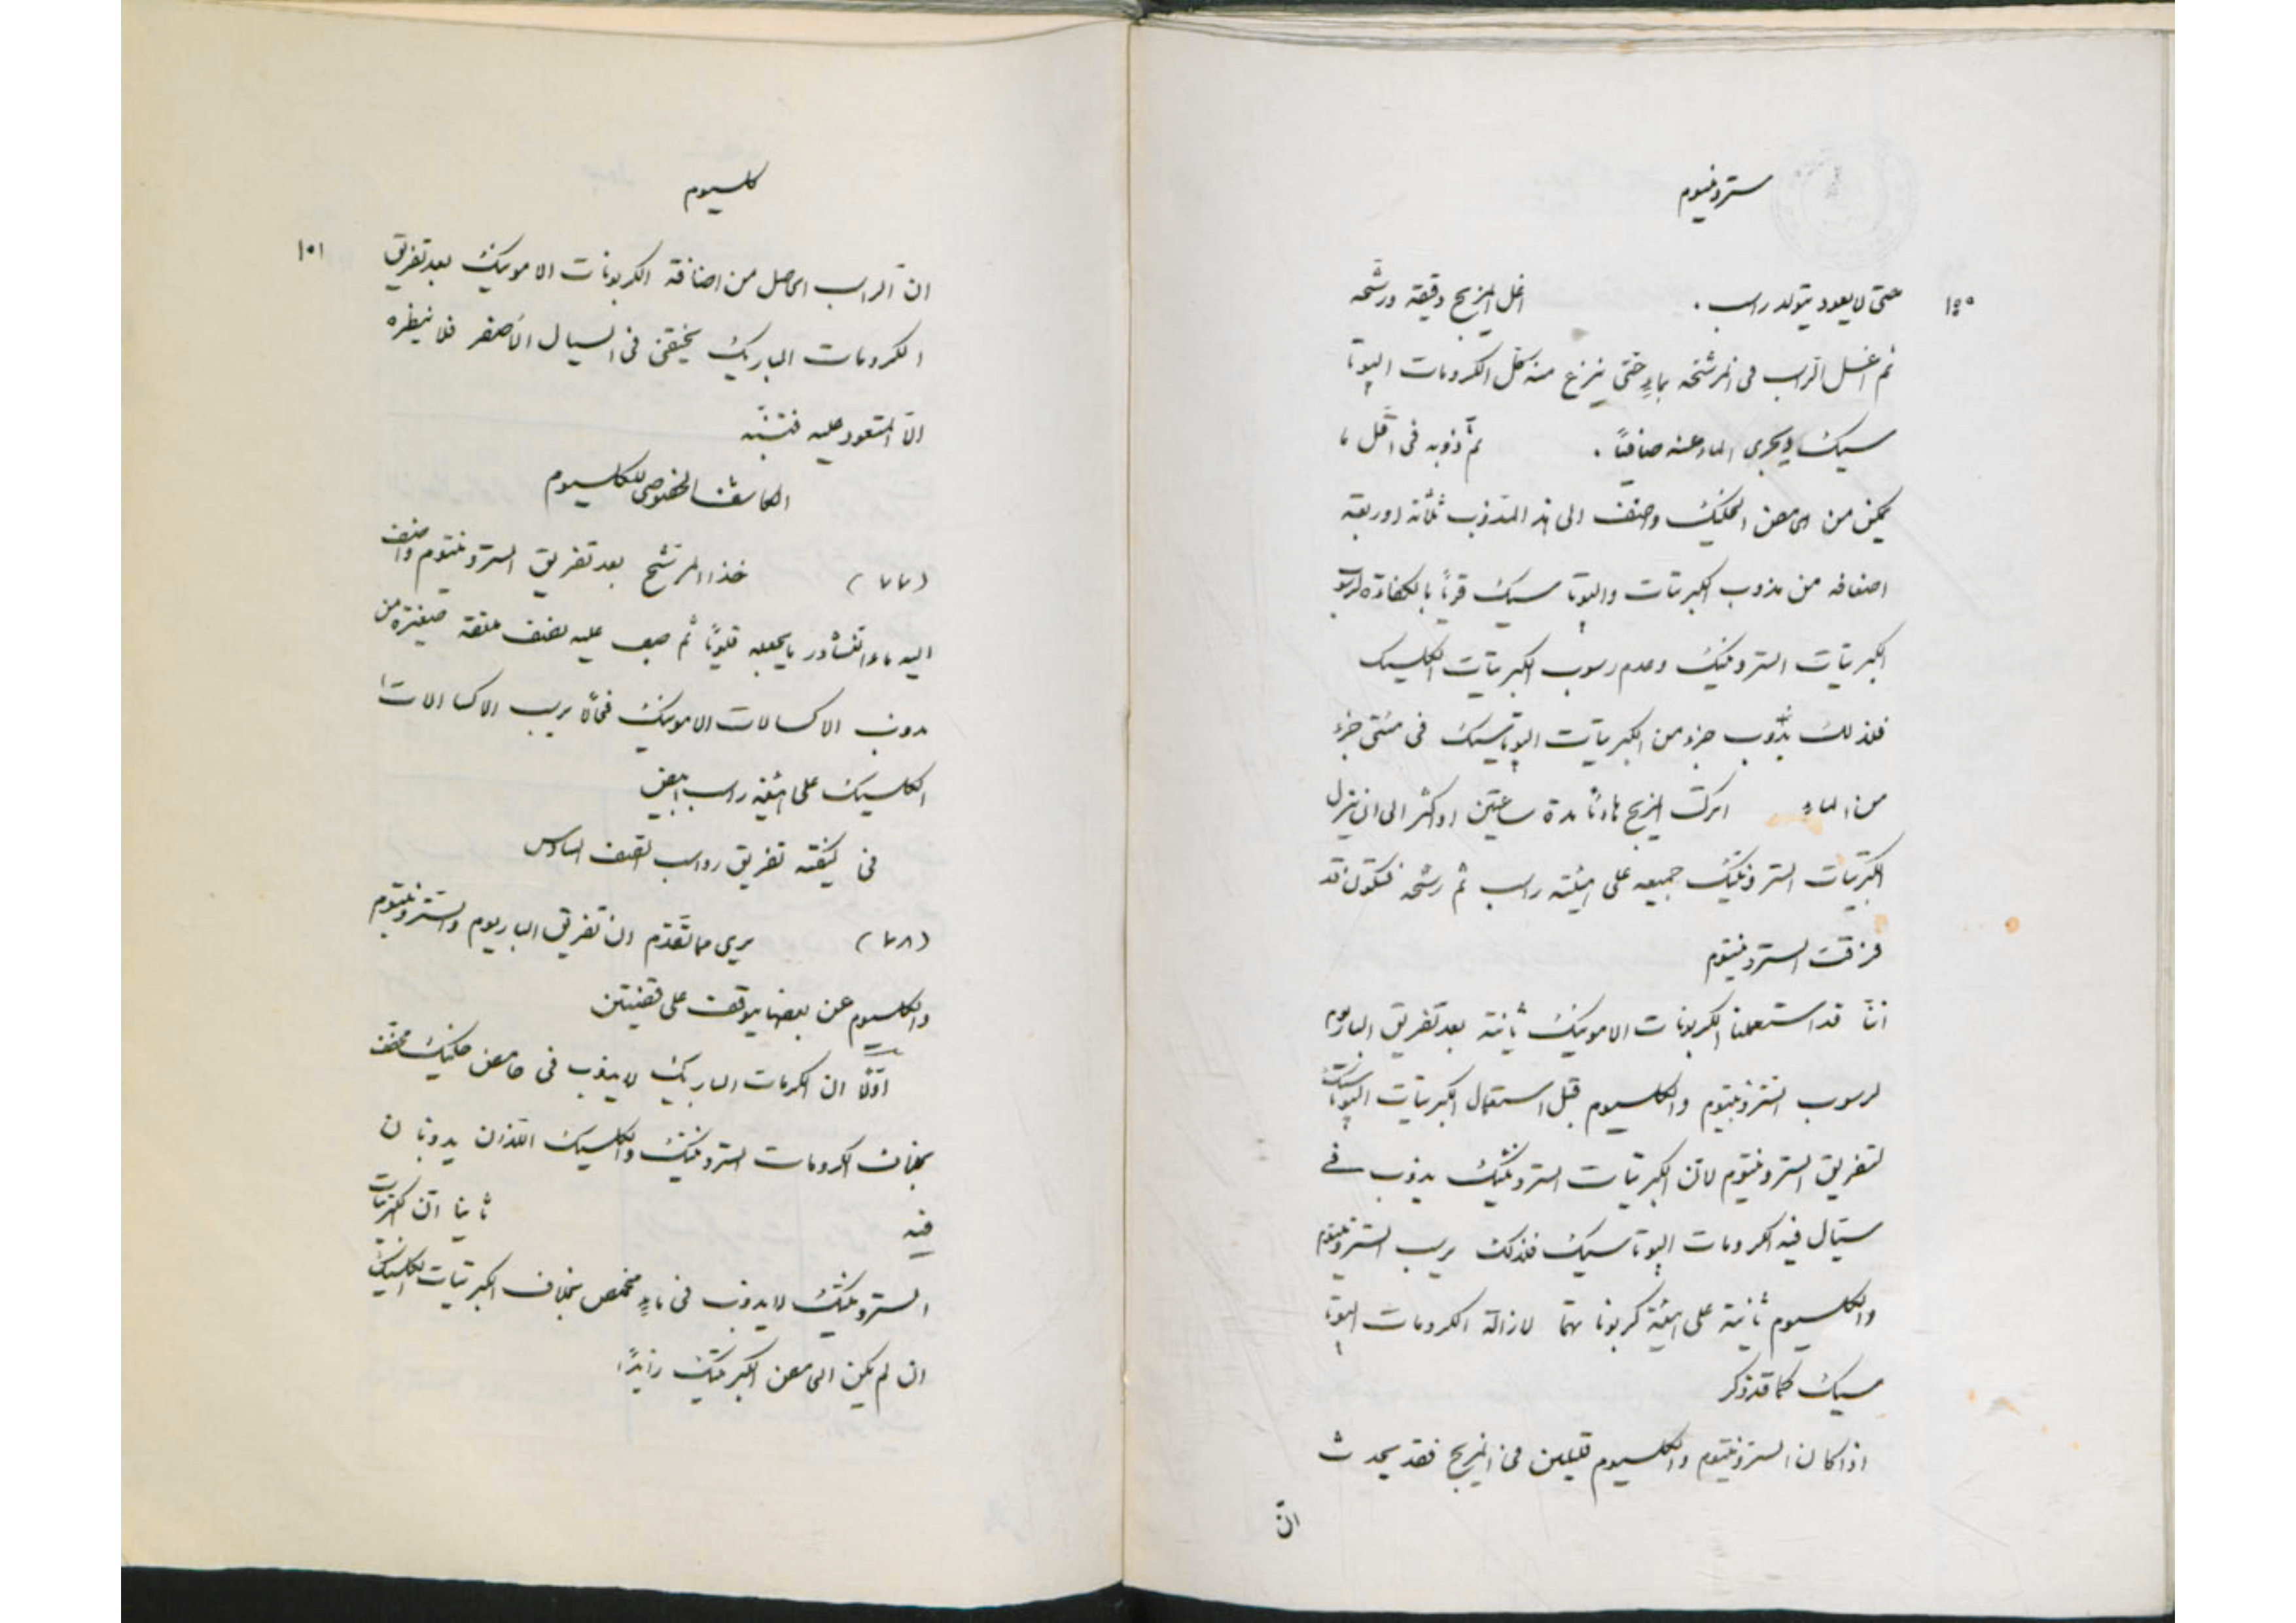 سترونتيوم
١٥٠
حتى لا يعود يتولد راسب . اغل المزيج دقيقة ورشحه
ثم اغسل الراسب فى المرشحه بماءٍ حتى ينزع منه كل الكرومات البوتا
سيك ويجرى الماء عنه صافيًا . ثم ذوبه فى اقل ما
يمكن من الحامض الخليك واضف الى هذا المذوب ثلاثة او اربعة
اضعافه من مذوب الكبريتات والبوتاسيك قويًا بالكفاءة لرسوب
الكبريتات السترونتيك وعدم رسوب الكبريتات الكلسيك
فلذلك يذوب جزء من الكبريتات البوتاسيك فى مئتى جزء
من الماء اترك المزيج هادئًا مدة ساعتين او اكثر الى ان ينزل
الكبريتات السترونتيك جميعه على هيئة راسب ثم رشحه فتكون قد
فرقت السترونتيوم
اننا قد استعملنا الكربونات الامونيك ثانية بعد تفريق الباريوم
لرسوب السترونتيوم والكلسيوم قبل استعمال الكبريتات البوتاسيك
لتفريق السترونتيوم لان الكبريتات السترونتيك يذوب فى
سيال فيه الكرومات البوتاسيك فلذلك يرسب السترونتيوم
والكلسيوم ثانية على هيئة كربوناتهما لازالة الكرومات البوتا
سيك كما قد ذكر
اذا كان السترونتيوم والكلسيوم قليلين فى المزيج فقد يحدث
انّ
كلسيوم
١٥١
ان الراسب الحاصل من اضافة الكربونات الامونيك بعد تفريق
الكرومات الباريك يختفى فى السيال الاصفر فلا ينظره
الّا المتعود عليه فتنبّه
الكاشف الخصوصى للكلسيوم
(٧٧) خذ المرشح بعد تفريق السترونتيوم واضف
اليه ماء النشادر ما يجعله قلويًا ثم صب عليه نصف ملعقة صغيرة من
مذوب الاكسالات الامونيك فحالًا يرسب الاكسالات
الكلسيك على هيئة راسب ابيض
فى كيفية تفريق رواسب الصنف السادس
(٧٨) يرى مما تقدّم ان تفريق الباريوم والسترونتيوم
والكلسيوم عن بعضها يتوقف على قضيتين
اوّلًا ان الكرمات الباريك لا يذوب فى حامض خليك مخفف
بخلاف الكرومات السترونتيك والكلسيك اللذان يذوبان
فيه ثانيا ان الكبريتات
السترونتيك لا يذوب فى ماءٍ محمض بخلاف الكبريتات الكلسيك
ان لم يكن الحامض الكبريتيك زايدًا